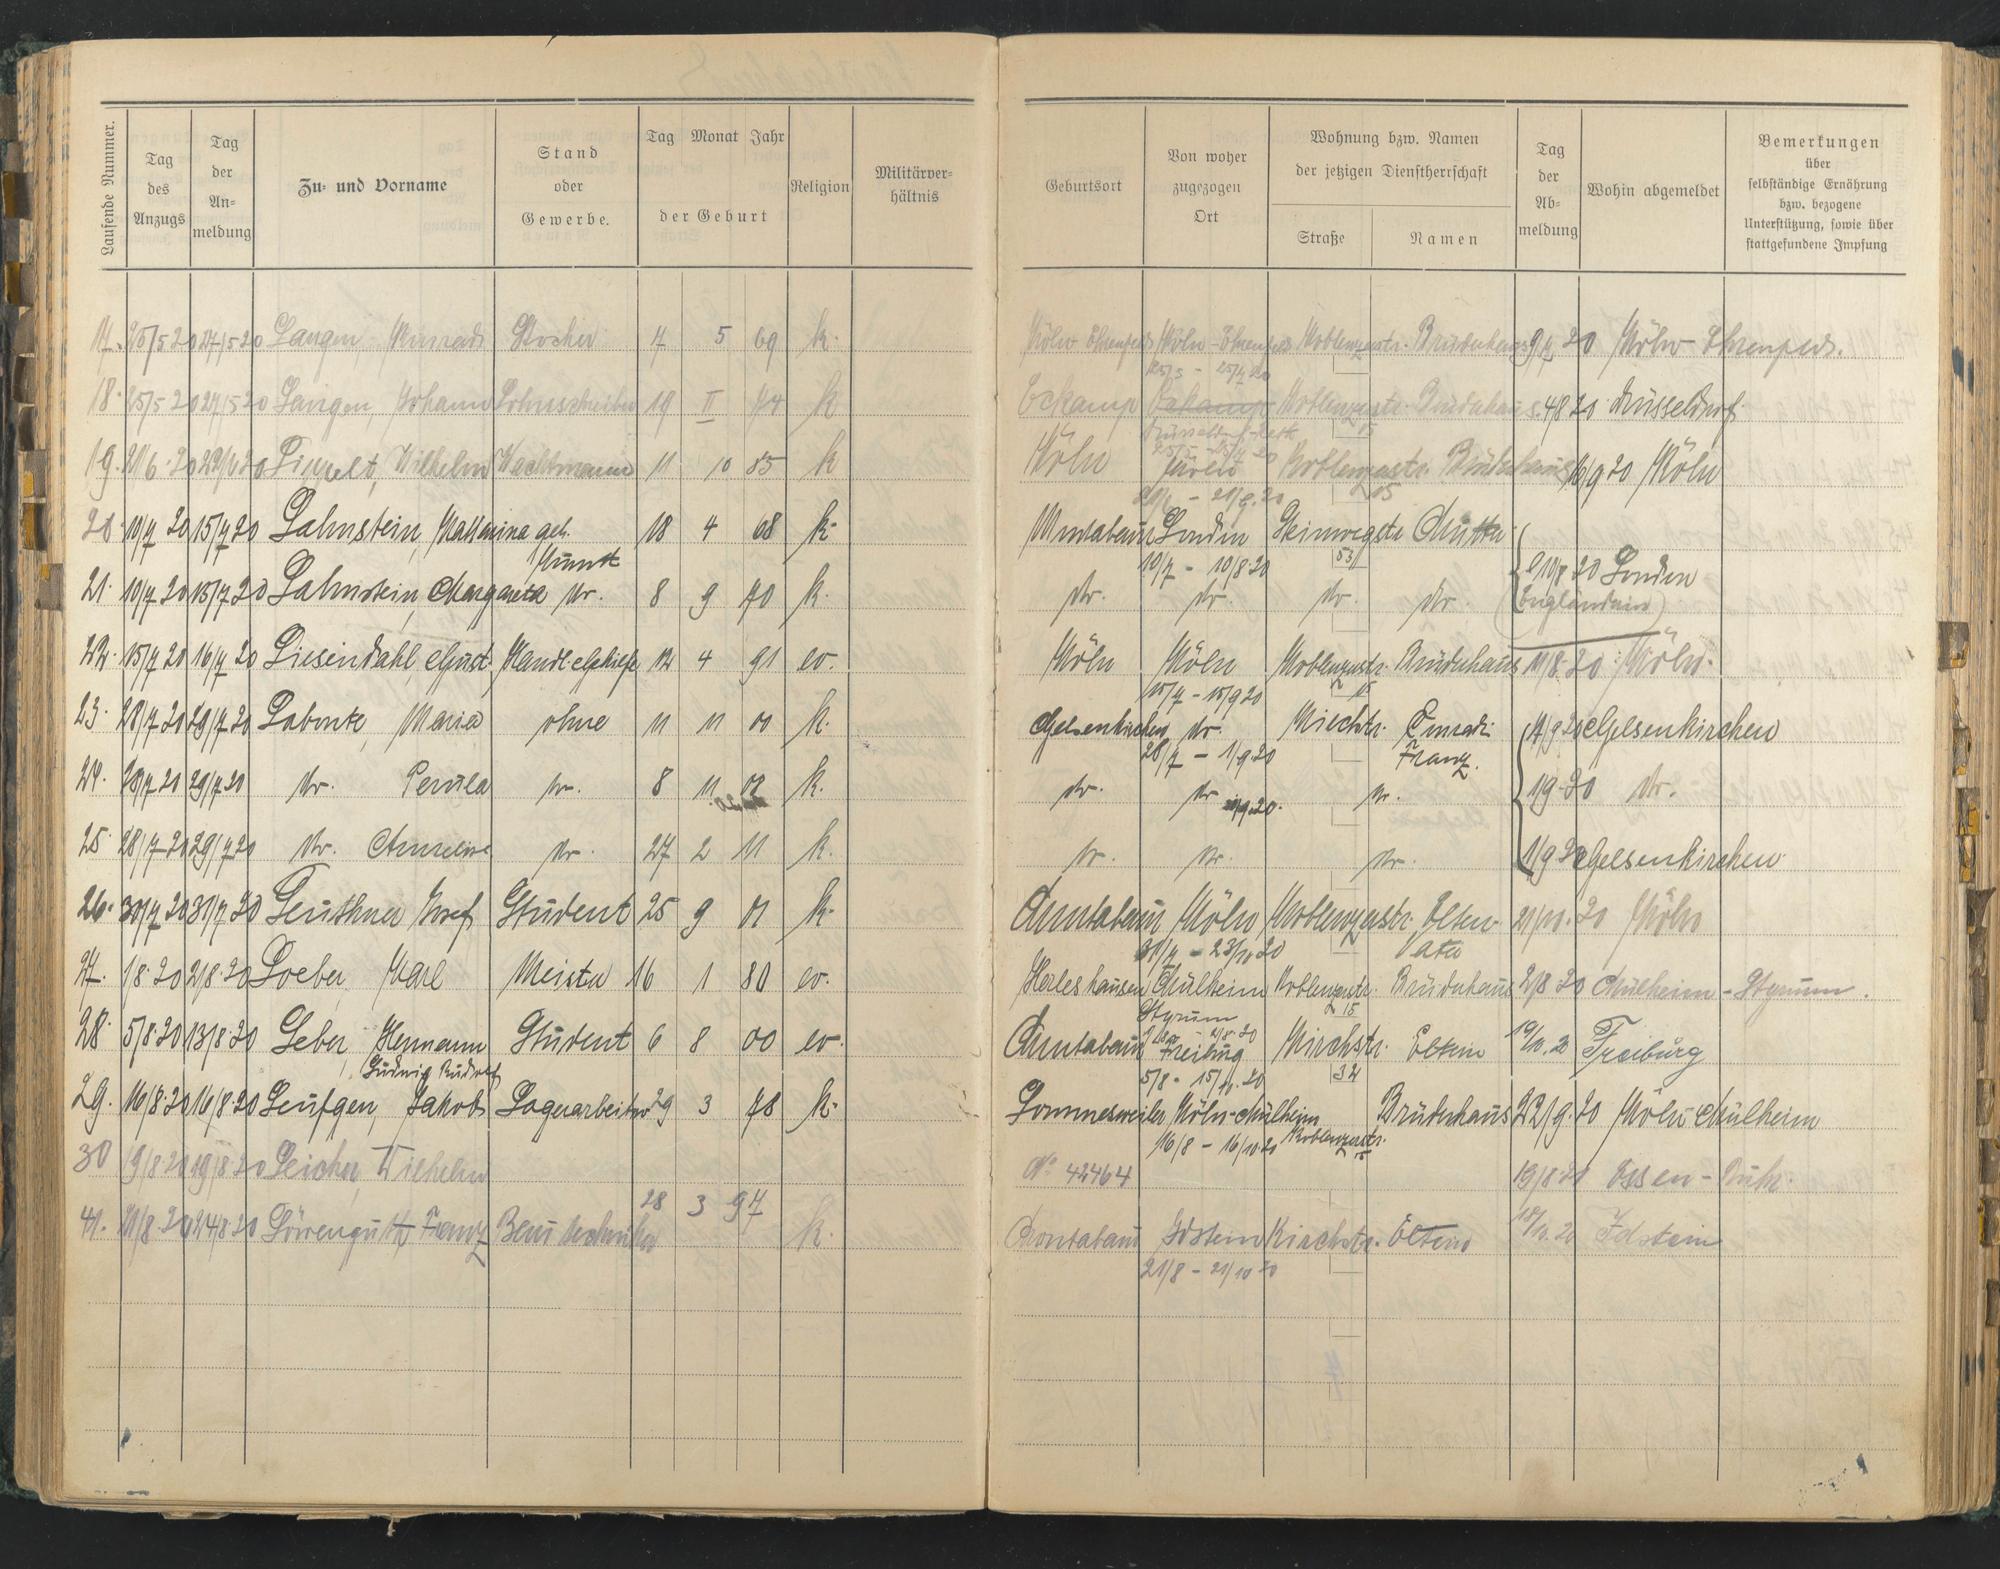 Laufende Nummer.
Tag des Anzugs
Tag der An- meldung
Zu- und Vorname
Stand oder Gewerbe.
Tag Monat Jahr
der Geburt
Religion
Militärver- hältnis
Geburtsort
Von woher zugezogen Ort
Wohnung bzw. Namen
der jetzigen Dienstherrschaft
Straße
Namen
Tag der Ab- meldung
Wohin abgemeldet
Bemerkungen
über
selbständige Ernährung
bzw. bezogene
Unterstützung, sowie über
stattgefundene Impfung
17. 25/5 20 27/5 20 Langen, Konrad Kocher 7 5 69 k. Köln-Ehrenfeld Köln-Ehrenfeld Koblenzerstr. Brüderhaus 20 Köln-Ehrenfeld.
18. 25/5 20 27/5 20 Langen, Johann Lohnschreiber 19 II 74 k Eckamp Eckamp Koblenzerstr. Brüderhaus 4/8 20 Düsseldorf
15
19. 21/6 20 Wilhelm Wachtmann 11 10 85 k Köln Koblenzerstr. Brüderhaus 16/9 20 Köln
15
20. 10/7 20 15/7 20 Lahnstein, Katharina geb. 18 4 68 k. Montabaur London Steinwegstr. Mutter
10/7 - 10/8 20 53
21. 10/7 20 15/7 20 Lahnstein, Margareta dto. 8 9 70 k. dto. dto. dto. dto. 10/8 20 London
(Engländerin)
22. 15/7 20 16/7 20 Liesendahl, Gust. Handl. Gehilfe 12 4 91 ev. Köln Köln Koblenzerstr. Brüderhaus 11/8 20 Köln.
15/7 - 15/9 20 15
23. 28/7 20 29/7 20 Labonte, Maria ohne 11 11 01 k. Gelsenkirchen dto. Kirchstr. Conradi 1/9 20 Gelsenkirchen
28/7 - 1/9 20 Franz.
24. 28/7 20 29/7 20 dto. dto. 8 11 02 k. dto. dto. dto. 1/9 20 dto.
25 28/7 20 29/7 20 dto. Anneliese dto. 27 2 11 k. dto. dto. dto. 1/9 20 Gelsenkirchen
26. 30/7 20 31/7 20 Leuthner Josef Student 25 9 01 k. Montabaur Köln Koblenzerstr. Eltern 21/10. 20 Köln
31/7 - 23/10 20 Vater
27. 1/8 20 2/8 20 Loeber, Karl Meister 16 1 80 ev. Herleshausen Mülheim Koblenzerstr. Brüderhaus 2/8 20 Mülheim-Styrum.
Styrum 15
28. 5/8 20 13/8 20 Leber, Hermann Student 6 8 00 ev. Montabaur Freiburg Kirchstr. Eltern 19/10. 20 Freiburg
Ludwig Rudolf 5/8 - 15/10. 20 32
29. 16/8 20 16/8 20 Leufgen, Jakob Lagerarbeiter 29 3 78 k. Lommesweiler Köln-Mülheim Brüderhaus 22/9. 20 Köln-Mülheim
16/8 - 16/10 20 Koblenzerstr. 15
30 19/8 20 19/8 20 Leicher, Wilhelm No. 42464 19/8 20 Essen-Ruhr.
41. 21/8 20 24/8 20 Löwenguth Franz Bautechniker 28 3 97 k. Montabaur Idstein Kirchstr. Eltern 18/10. 20 Idstein
21/8 - 21/10 20